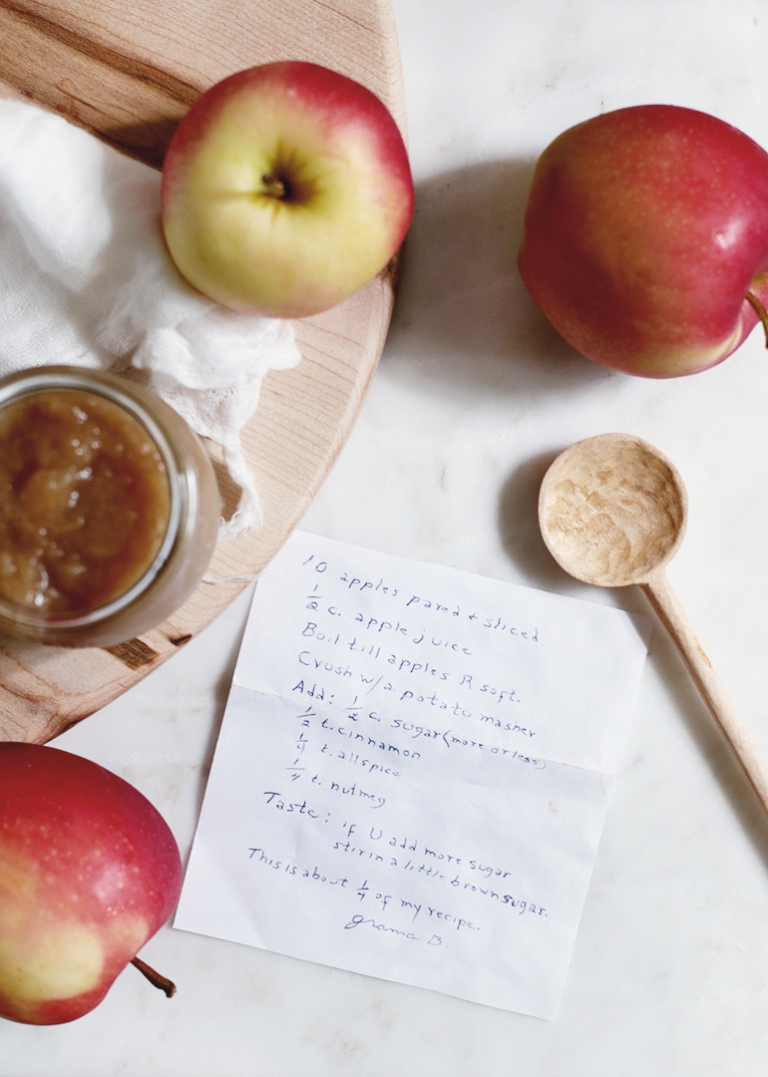 10 apples pared + sliced
1/2 c. apple juice
Boil till apples R soft.
Crush w/a potato masher
Add: 1/2 c. sugar (more or less)
1/2 t. cinnamon
1/4 t. allspice
1/4 t. nutmeg
Taste: if U add more sugar
stir in a little brown sugar.
This is about 1/4 of my recipe.
grama B.